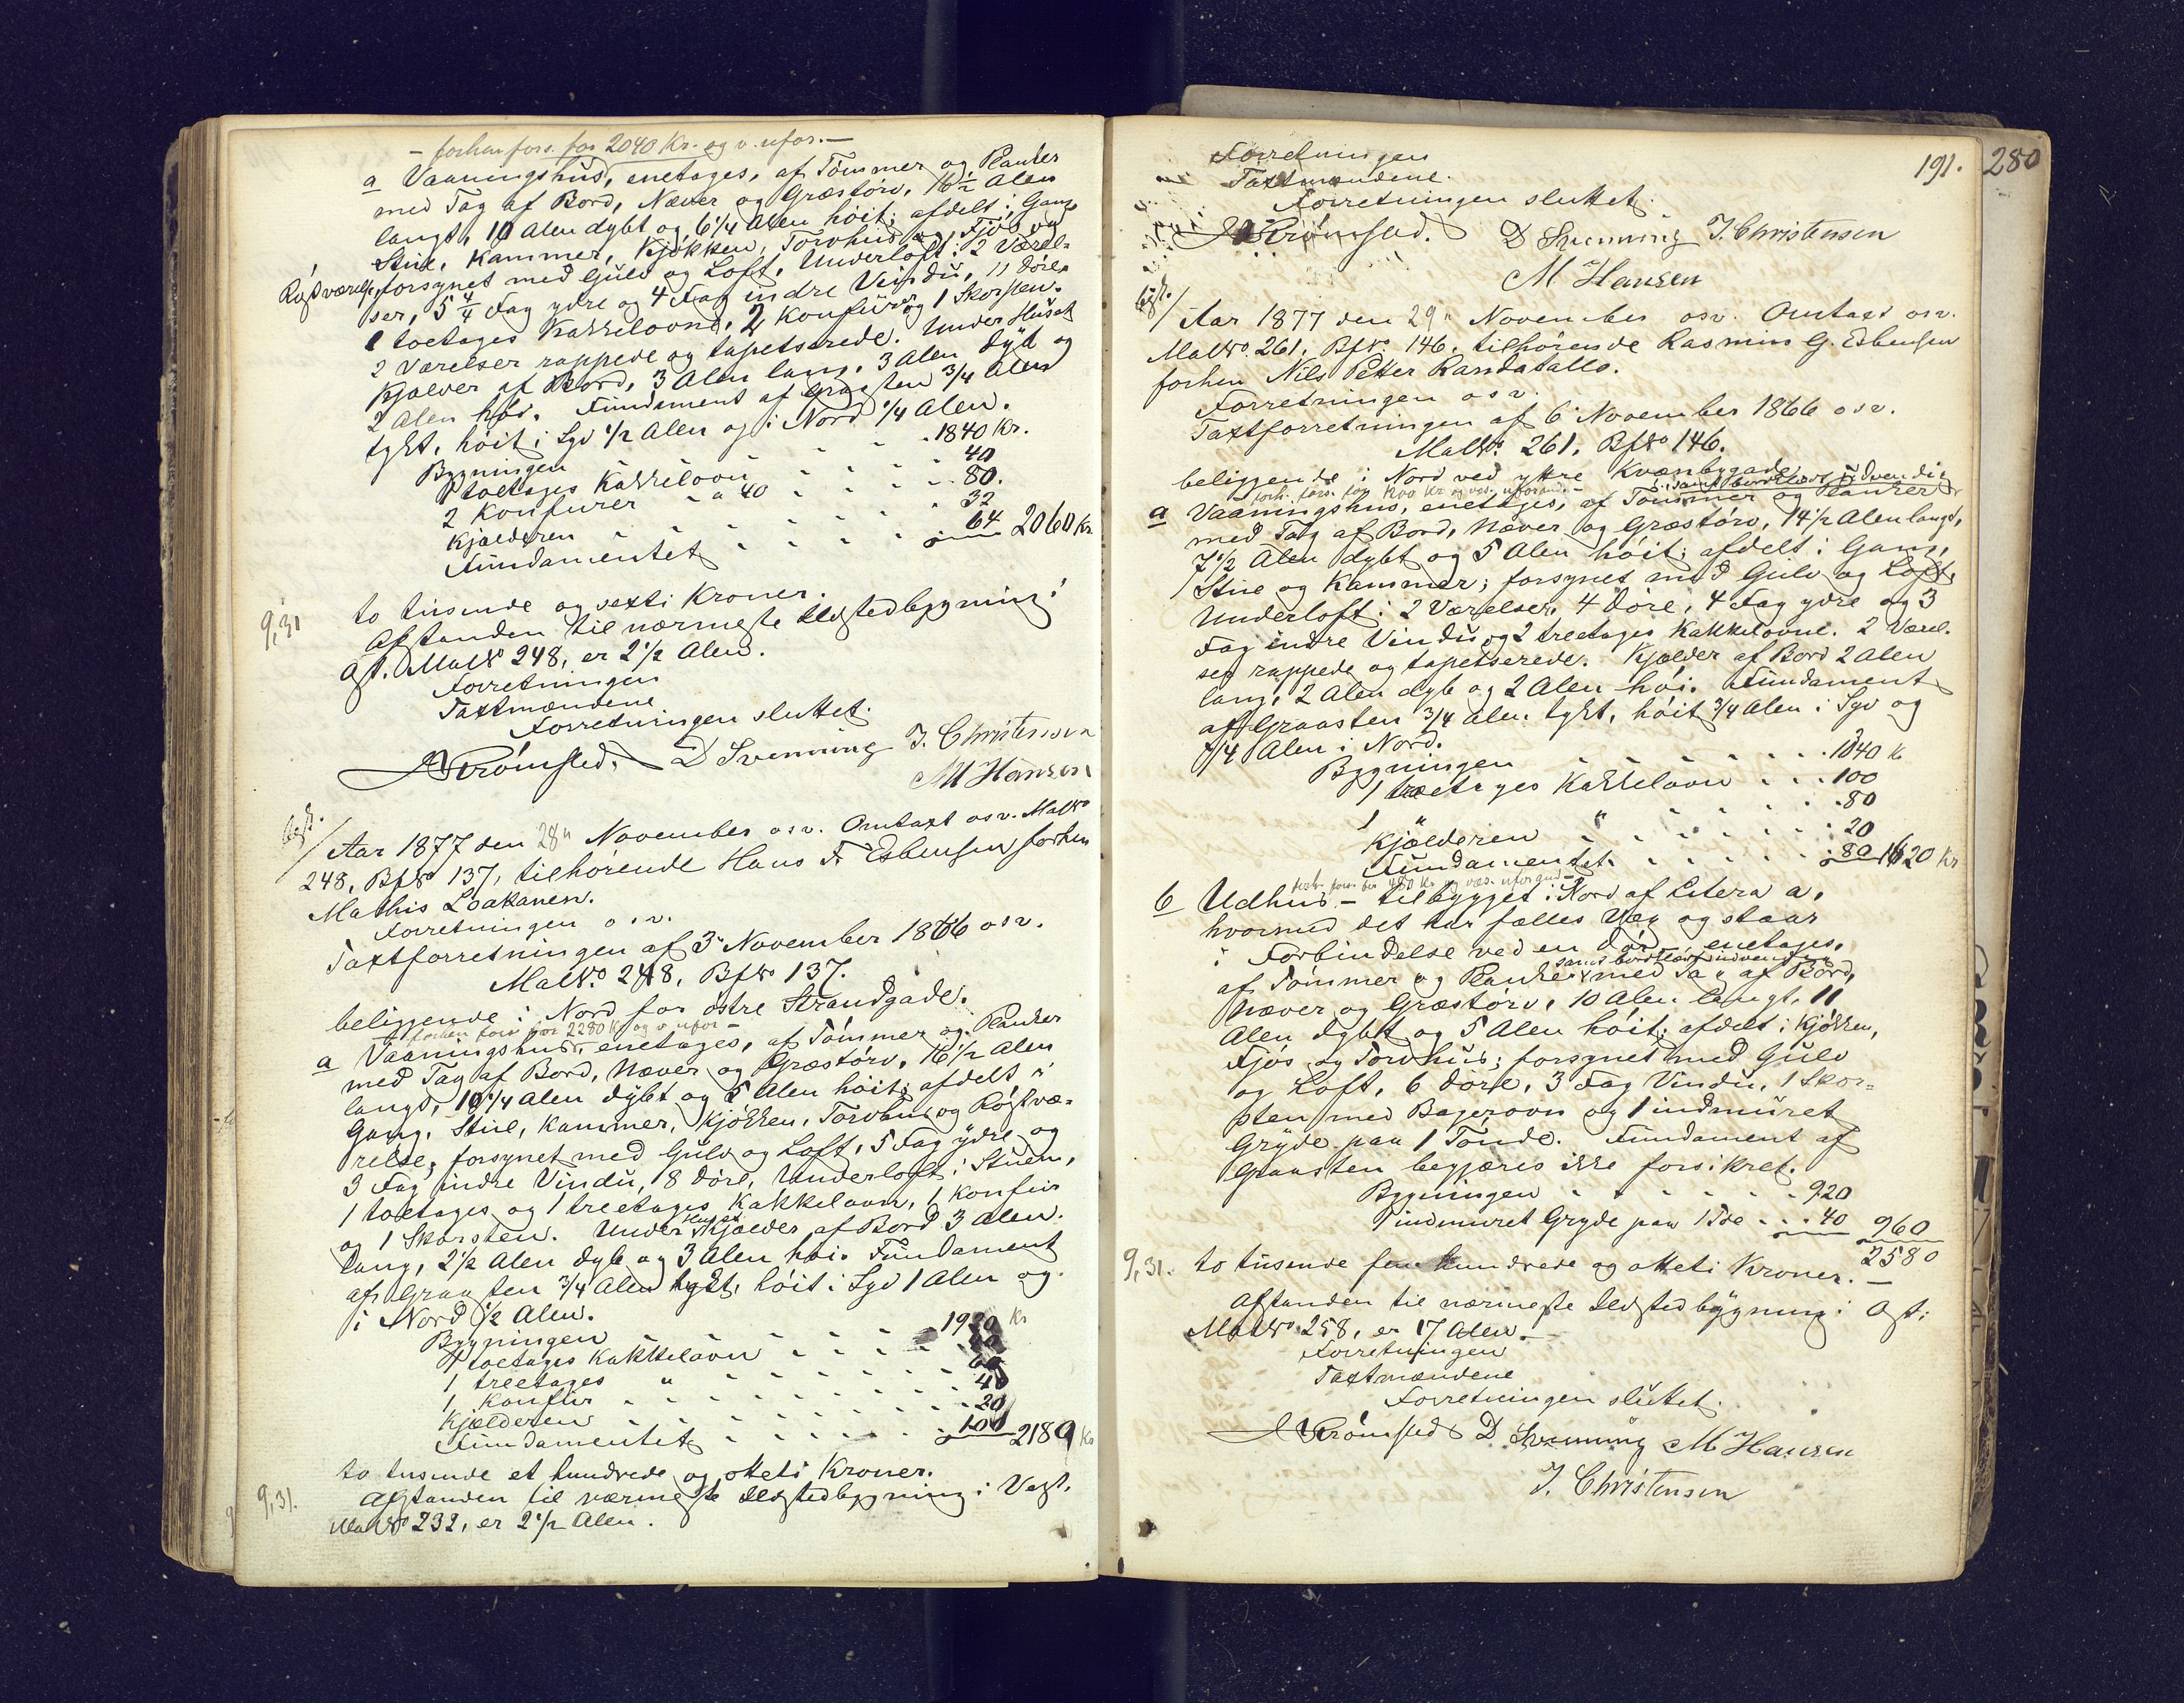 - forhen fors. for 2040 Kr. og v. ufor. -
a Vaaningshus, enetages, af Tømmer og Planker
med Tag af Bord, Næver og Græstørv, 16 1/2 Alen
langt, 10 Alen dybt og 6 1/4 Alen høit; afdelt i Gang,
Stue, Kammer, Kjøkken, Torvhus og Fjøs og
Røgtværelse, forsynet med Gulv og Loft. Underloft i 2 Værel-
ser, 5 4/4 Fag ydre og 4 Fag indre Vindu, 11 Døre,
1 toetages Kakkelovn, 2 Konfurer og 1 Skorsten.
2 Værelser rappede og tapetserede. Under Huset
Kjælder af Bord, 3 Alen lang, 3 Alen dyb og
2 Alen høi. Fundament af Graasten 3/4 Alen
tykt, høit i Syd 1/2 Alen og i Nord 1/4 Alen.
Bygningen 1840 Kr.
1 toetages Kakkelovn 40
2 Konfurer " a 40 80.
Kjælderen 32
Fundamentet 64 2060 Kr.
9,31 to tusende og sexti Kroner.
Afstanden til nærmeste Ildstedbygning i
Øst. MatNo 248, er 2 1/2 Alen.
Forretningen
Taxtmændene
Forretningen sluttet.
A Strømsted. D Svenning J. Christensen
M Hansen
begt. / Aar 1877 den 28" November osv. Omtaxt osv. MatNo
248, BfNo 137, tilhørende Hans F. Esbensen forhen
Mathis Loakanen.
Forretningen osv.
Taxtforretningen af 3" November 1866 osv.
MatNo 248, BfNo 137.
beliggende i Nord for østre Strandgade.
forhen fors. for 2280 Kr og v. ufor -
a Vaaningshus, enetages, af Tømmer og Planker
med Tag af Bord, Næver og Græstørv, 16 1/2 Alen
langt, 10 1/4 Alen dybt og 5 Alen høit; afdelt i
Gang, Stue, Kammer, Kjøkken, Torvhus og Røgtvæ-
relse; forsynet med Gulv og Loft, 5 Fag ydre og
3 Fag indre Vindu, 8 Døre, Underloft i Stuen,
1 toetages og 1 treetages Kakkelovn, 1 Konfur
og 1 Skorsten. Under Huset Kjælder af Bord 3 Alen
lang, 2 1/2 Alen dyb og 3 Alen høi. Fundament
af Graasten 3/4 Alen tykt, høit i Syd 1 Alen og
i Nord 1/2 Alen.
Bygningen 1920 Kr
1 toetages Kakkelovn 40
1 treetages " 60
1 Konfur 40
Kjælderen 20
Fundamentet 100 2180 Kr
9,31. to tusende et hundrede og otteti Kroner.
Afstanden til nærmeste Ildstedbygning i Vest.
MatNo 232, er 2 1/2 Alen.
191. 280
Forretningen
Taxtmændene.
Forretningen sluttet.
A Strømsted. D Svenning J. Christensen
M Hansen
begt. / Aar 1877 den 29" November osv. Omtaxt osv.
MatNo. 261, BfNo. 146. tilhørende Rasmus G. Esbensen
forhen Nils Petter Randatallo.
Forretningen osv.
Taxtforretningen af 6" November 1866 osv.
MatNo. 261. BfNo 146.
beliggende i Nord ved yttre Kvænbygade
samt bordklædt udvendig
forh. fors. for Kr og væs. uforand. -
a Vaaningshus, enetages, af Tømmer og Planker
med Tag af Bord, Næver og Græstørv, 14 1/2 Alen langt,
7 1/2 Alen dybt og 5 Alen høit; afdelt i Gang,
Stue og Kammer; forsynet med Gulv og Loft,
Underloft i 2 Værelser, 4 Døre, 4 Fag ydre og 3
Fag indre Vindu og 2 treetages Kakkelovne. 2 Værel-
ser rappede og tapetserede. Kjælder af Bord 2 Alen
lang, 2 Alen dyb og 2 Alen høi. Fundament
af Graasten 3/4 Alen tykt, høit 3/4 Alen i Syd og
1/4 Alen i Nord.
Bygningen 1340 K
1 treetages Kakkelovn 100
1 " " 80
Kjælderen 20
Fundamentet 80 1620 Kr
forh. fors. for 480 Kr og væs. uforand -
b Udhus - tilbygget i Nord af Litera a,
hvormed det har fælles Væg og staar
i Forbindelse ved en Dør - enetages,
samt bordklædt indvendig
af Tømmer og Planker med Tag af Bord,
Næver og Græstørv, 10 Alen langt, 11
Alen dybt og 5 Alen høit; afdelt i Kjøkken,
Fjøs og Torvhus; forsynet med Gulv
og Loft, 6 Døre, 3 Fag Vindu, 1 Skor-
sten med Bagerovn og 1 indmuret
Gryde paa 1 Tønde. Fundament af
Graasten begjæres ikke forsikret.
Bygningen 920
1 indmuret Gryde paa 1 Tde 40 960
2580
9,31. to tusende fem hundrede og otteti Kroner. -
Afstanden til nærmeste Ildstedbygning i Øst.
MatNo 258, er 17 Alen. -
Forretningen
Taxtmændene
Forretningen sluttet.
A Strømsted D Svenning M Hansen
J. Christensen